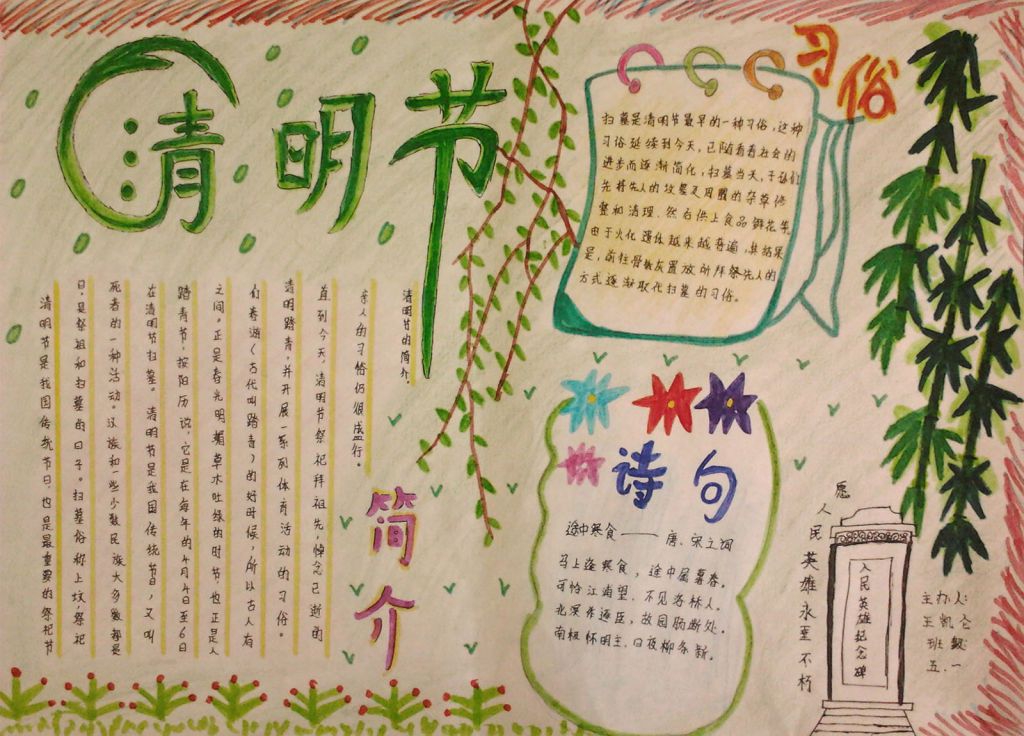 清明节
清明节的简介.
清明节是我国传统节日,也是最重要的祭祀节
日,是祭祖和扫墓的日子。扫墓俗称上坟,祭祀
死者的一种活动。汉族和一些少数民族大多数都是
在清明节扫墓。清明节是我国传统节日,又叫
踏青节,按阳历说,它是在每年的4月4日至6日
之间。正是春光明媚草木吐绿的时节,也正是人
们春游(古代叫踏青)的好时候,所以古人有
清明踏青,并开展一系列体育活动的习俗。
直到今天,清明节祭祀拜祖先,悼念已逝的
亲人的习俗仍很盛行。
简介
习俗
扫墓是清明节最早的一种习俗,这种
习俗延续到今天,已随着着社会的
进步而逐渐简化,扫墓当天,子孙们
先将先人的坟墓及周围的杂草修
整和清理,然后供上食品鲜花等
由于火化遗体越来越普遍,其结果
是,前往骨灰置放所拜祭先人的
方式逐渐取代扫墓的习俗。
诗句
途中寒食——唐.宋之问
马上逢寒食,途中属暮春。
可怜江浦望,不见洛林人。
北溟希逐臣,故园肠断处。
南极怀明主,日夜柳条新。
愿人民英雄永垂不朽
人民英雄纪念碑
主办人:
王凯
班级
五.一